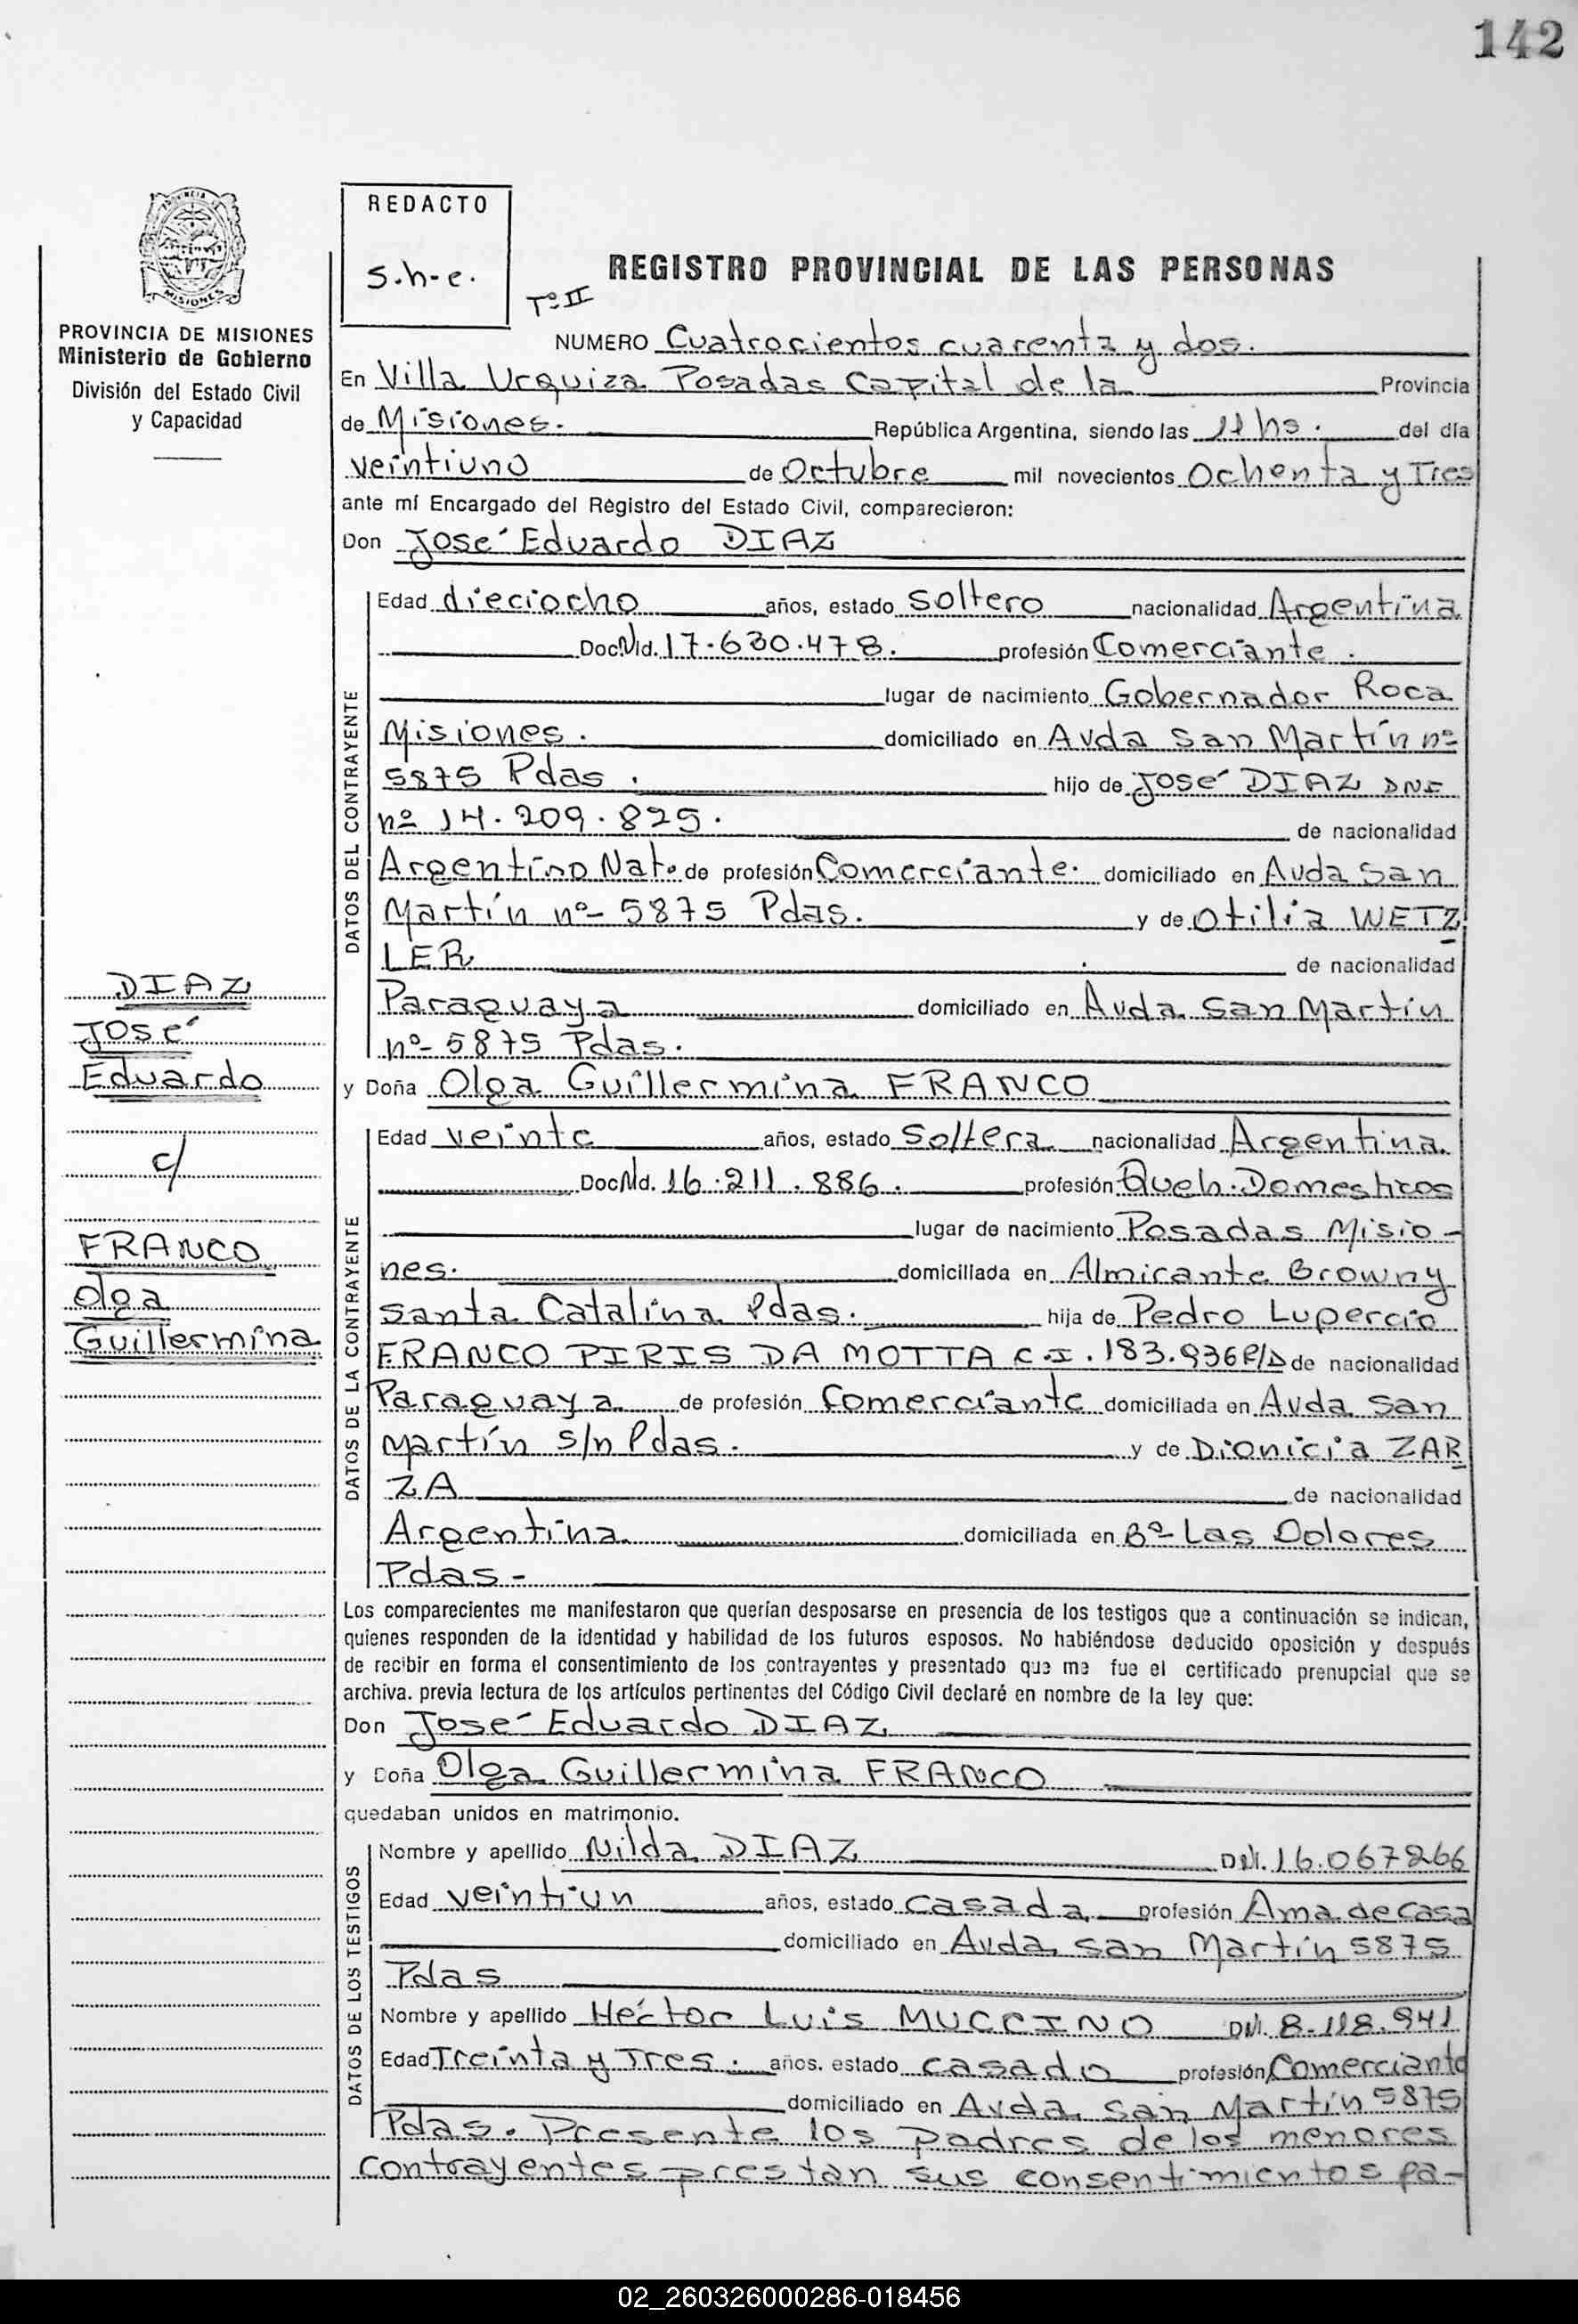 142
REDACTO
S.h-e.
REGISTRO PROVINCIAL DE LAS PERSONAS
Tº II
PROVINCIA DE MISIONES
Ministerio de Gobierno
División del Estado Civil
y Capacidad
NUMERO Cuatrocientos cuarenta y dos.
En Villa Urquiza Posadas Capital de la Provincia
de Misiones. República Argentina, siendo las 11 hs. del día
veintiuno de Octubre mil novecientos Ochenta y Tres
ante mí Encargado del Registro del Estado Civil, comparecieron:
Don José Eduardo DIAZ
DATOS DEL CONTRAYENTE
Edad dieciocho años, estado Soltero nacionalidad Argentina
Doc. Nd. 17.630.478. profesión Comerciante.
lugar de nacimiento Gobernador Roca
Misiones. domiciliado en Avda San Martín nº
5875 Pdas. hijo de José DIAZ DNI
nº 14.209.825. de nacionalidad
Argentino Nat. de profesión Comerciante. domiciliado en Avda San
Martín nº 5875 Pdas. y de Otilia WETZ
LER de nacionalidad
Paraguaya domiciliado en Avda San Martín
nº 5875 Pdas.
DIAZ
José
Eduardo
c/
FRANCO
Olga
Guillermina
y Doña Olga Guillermina FRANCO
DATOS DE LA CONTRAYENTE
Edad veinte años, estado Soltera nacionalidad Argentina.
Doc. Nd. 16.211.886. profesión Queh. Domesticos
lugar de nacimiento Posadas Misio-
nes. domiciliada en Almirante Brown y
Santa Catalina Pdas. hija de Pedro Lupercio
FRANCO PIRIS DA MOTTA C.I. 183.936 R/D de nacionalidad
Paraguaya de profesión Comerciante domiciliada en Avda San
Martín s/n Pdas. y de Dionicia ZAR
ZA de nacionalidad
Argentina domiciliada en Bº Las Dolores
Pdas-
Los comparecientes me manifestaron que querían desposarse en presencia de los testigos que a continuación se indican,
quienes responden de la identidad y habilidad de los futuros esposos. No habiéndose deducido oposición y después
de recibir en forma el consentimiento de los contrayentes y presentado que me fue el certificado prenupcial que se
archiva. previa lectura de los artículos pertinentes del Código Civil declaré en nombre de la ley que:
Don José Eduardo DIAZ
y Doña Olga Guillermina FRANCO
quedaban unidos en matrimonio.
DATOS DE LOS TESTIGOS
Nombre y apellido Nilda DIAZ DNI. 16.067266
Edad veintiun años, estado Casada profesión Ama de Casa
domiciliado en Avda San Martín 5875
Pdas
Nombre y apellido Héctor Luis MUCCINO DNI. 8.118.941
Edad Treinta y Tres. años. estado Casado profesión Comerciante
domiciliado en Avda San Martín 5875
Pdas. Presente los padres de los menores
contrayentes prestan sus consentimientos pa-
02_260326000286-018456